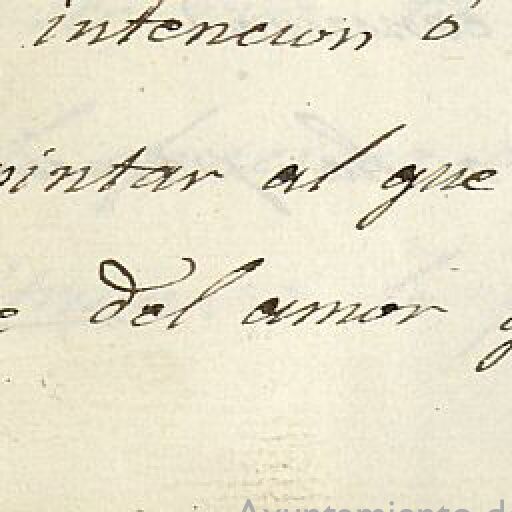 intencion ó
pintar al que
e del amor g
Ayuntamiento de